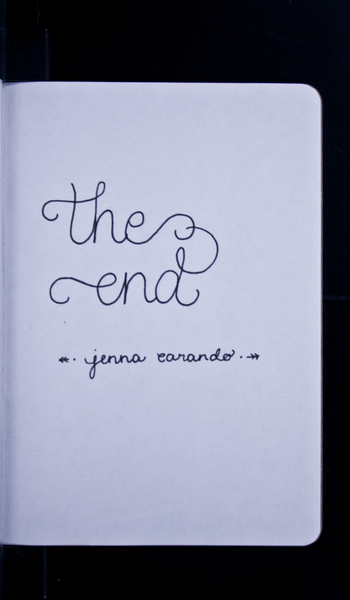 the
end
jenna carando